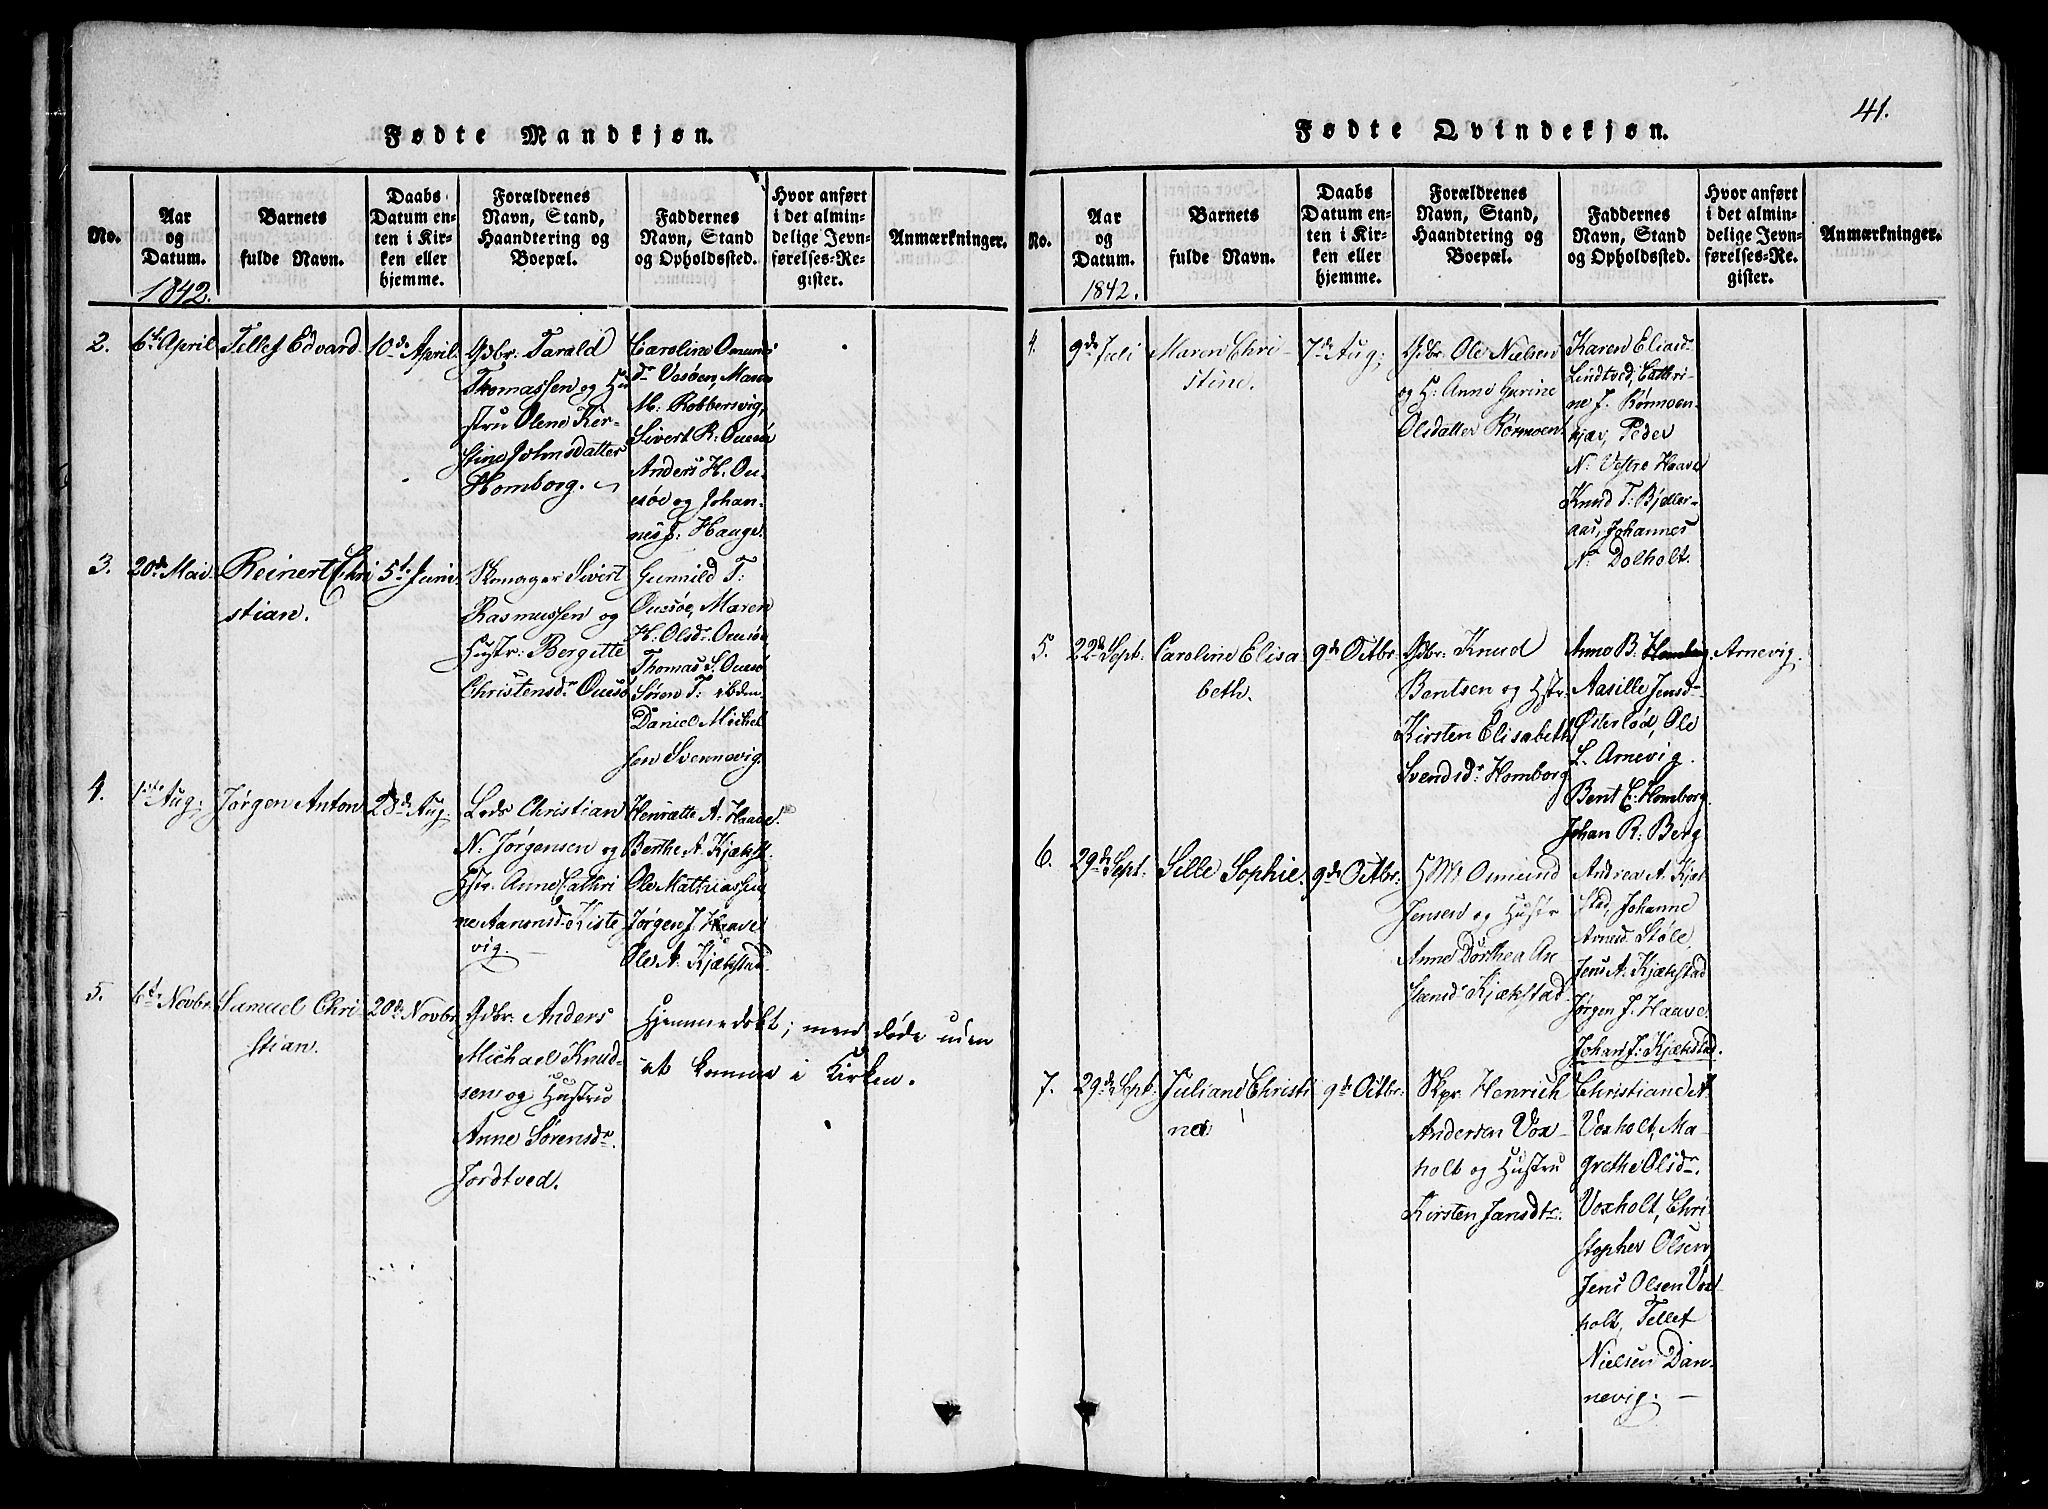 41.
Fødte Mandkjøn.
No.
Aar
og
Datum.
1842.
Barnets
fulde Navn.
Daabs
Datum en-
ten i Kir-
ken eller
hjemme.
Forældrenes
Navn, Stand,
Haandtering og
Boepæl.
Faddernes
Navn, Stand
og Opholdssted.
Hvor anført
i det almin-
delige Jevn-
førelses-Re-
gister.
Anmærkninger.
2.
6te April
Tellef Edvard
10de April.
Gdbr: Tarald
Thomassen og Hu
stru Olene Ker-
stine Johnsdatter
Homborg.
Caroline Osmunds
dr Vesøen, Maren
M: Robbersvig,
Sivert R: Ouesøe
Anders H. Ou-
esøe og Johan-
nes J: Hauge.
3.
20de Mai
Reinert Chri
stian.
5te Juni
Skomager Sivert
Rasmussen og
Hustr: Bergitte
Christensdr Ouesø
Gunnild T:
Ouesøe, Maren
H. Olsdr Ouesøe
Thomas S. Ouesø
Søren T: ibdem
Daniel Michel
sen Svennevig.
4.
1ste Aug:
Jørgen Anton
28de Aug:
Lods Christian
N. Jørgensen og
Hstr. Anne Cathri
ne Aanonsd: Kiste
vig.
Henrætte A: Haave.
Berthe A. Kjækst.
Ole Mathiassen
Jørgen J. Haave
Ole A. Kjækstad.
5.
6te Novbr
Samuel Chri-
stian.
20de Novbr
Gdbr: Anders
Michael Knud-
sen og Hustru
Anne Sørensdr.
Jordtved.
Hjemmedøbt; men døde uden
at komme i Kirken.
Fødte Qvindekjøn.
No.
Aar
og
Datum.
1842.
Barnets
fulde Navn.
Daabs
Datum en-
ten i Kir-
ken eller
hjemme.
Forældrenes
Navn, Stand,
Haandtering og
Boepæl.
Faddernes
Navn, Stand
og Opholdssted.
Hvor anført
i det almin-
delige Jevn-
førelses-Re-
gister.
Anmærkninger.
4.
9de Juli
Maren Chri-
stine.
7de Aug;
Gdbr. Ole Nielsen
og H: Anne Gurine
Olsdatter Rørmoen.
Karen Eliasd
Lindtved, Cathri-
ne J. Rørmoen-
kjær, Peder
N: Vestre Haave
Knud T: Bjeller-
aas, Johannes
N. Dolholt.
5.
22de Sept:
Caroline Elisa
beth.
9de Octbr:
Gdbr: Knud
Bentsen og Hstr:
Kirsten Elisabeth
Svendsdr Homborg
Anne B. Homborg. Arnevig.
Aasille Jensd-
Østerlød, Ole
L. Arnevig.
Bent E: Homborg.
Johan R: Berg
6.
29de Sept:
Sille Sophie.
9de Octbr:
HMd Osmund
Jensen og Hustr
Anne Dorthea An
stensd Kjækstad.
Andrea A. Kjæk
stad, Johanne
Arnesd. Støle.
Jens A. Kjækstad
Jørgen J. Haave.
Johan J: Kjækstad.
7.
29de Sept:
Juliane Christi
ne
9de Octbr:
Skpr. Henrich
Andersen Vox-
holt og Hustru
Kirsten Jansdtr:
Christiane A
Voxholt, Ma-
grethe Olsdr.
Voxholt, Chri-
stopher Olsen,
Jens Olsen Vox
holt, Tellef
Nielsen Dan-
nevig. —